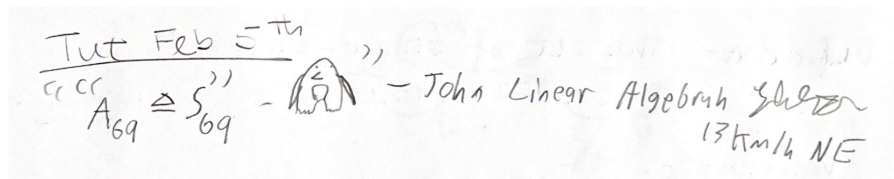 Tut Feb 5th
““A₆₉ ≙ S₆₉” - ” - John Linear Algebruh
13 Km/h NE